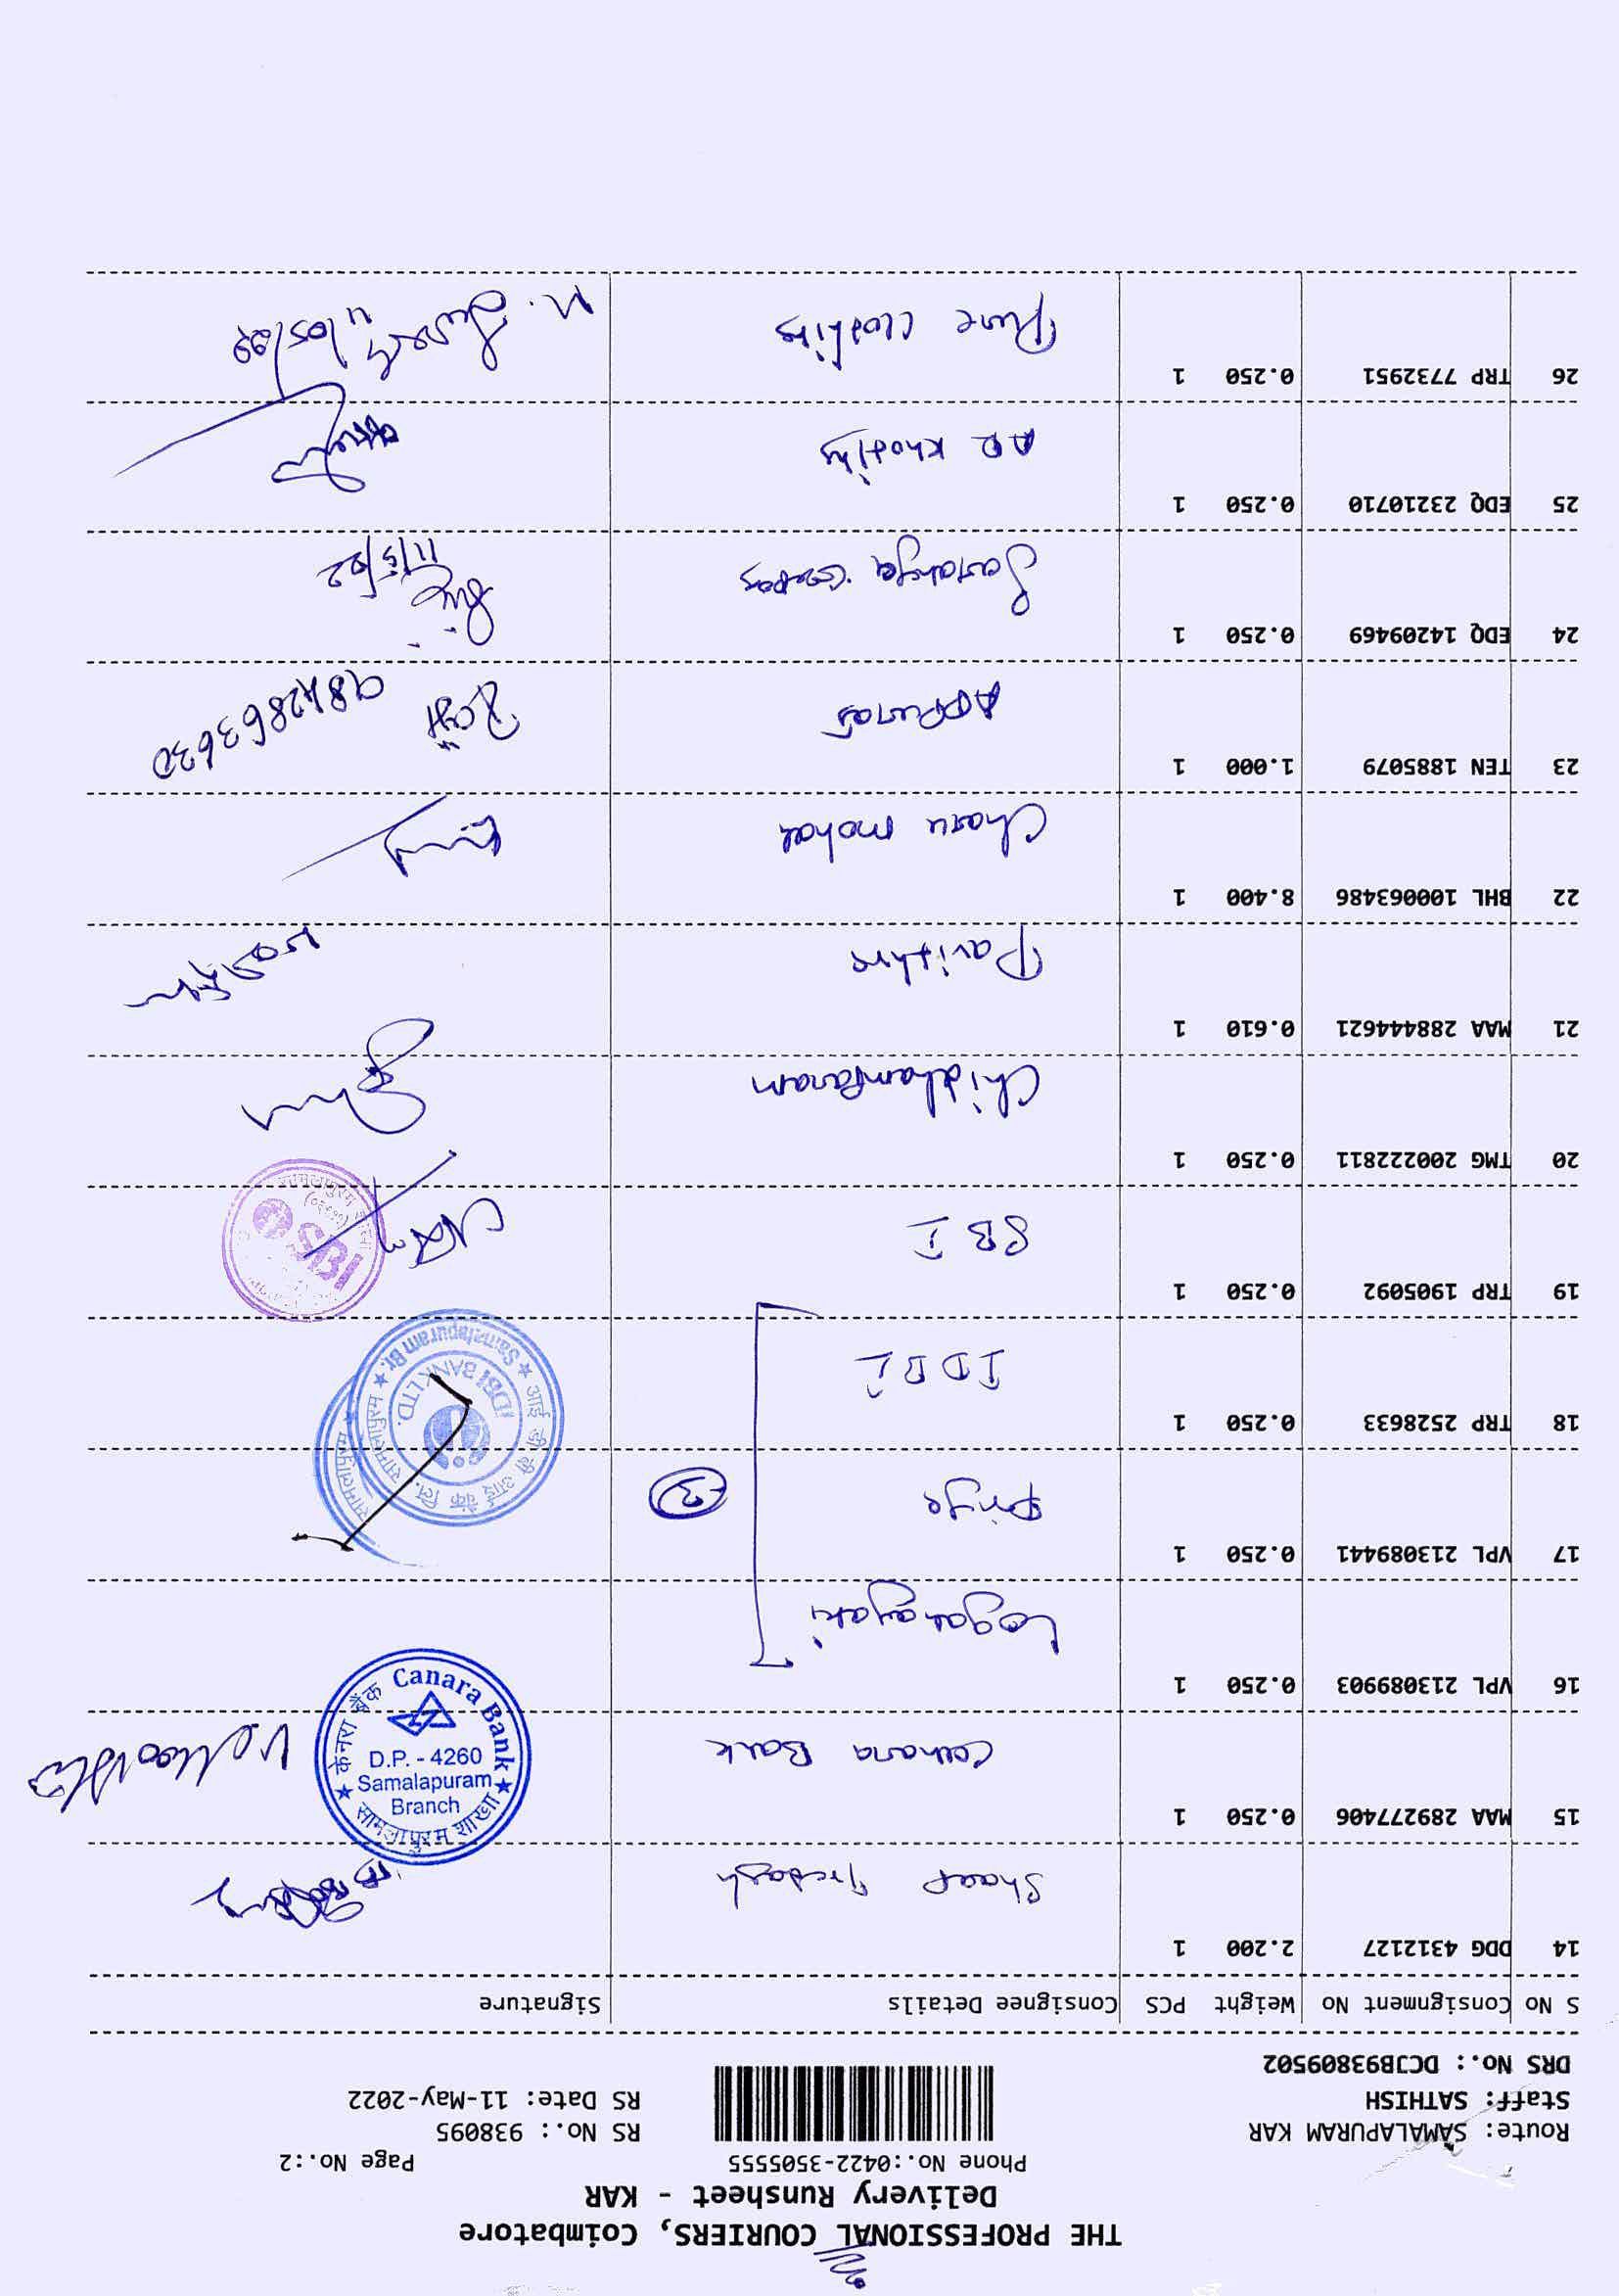 THE PROFESSIONAL COURIERS, Coimbatore
Delivery Runsheet - KAR
Phone No.:0422-3505555
Page No.:2
Route: SAMALAPURAM KAR
RS No.: 938095
Staff: SATHISH
RS Date: 11-May-2022
DRS No.: DCJB93809502
S No Consignment No Weight PCS Consignee Details Signature
14 DDG 4312127 2.200 1
15 MAA 289277406 0.250 1 Canara Bank
केनरा बैंक Canara Bank
D.P. - 4260
Samalapuram
Branch
सामलापुरम शाखा
16 VPL 213089903 0.250 1 Loganayaki
17 VPL 213089441 0.250 1 Priya
3
18 TRP 2528633 0.250 1 IDBI
आई डी बी आई बैंक लि.
IDBI BANK LTD.
Samalapuram Br.
19 TRP 1905092 0.250 1 SBI
SBI
20 TMG 200222811 0.250 1 Chidhambaram
21 MAA 288444621 0.610 1 Pavithra
22 BHL 100063486 8.400 1 Charu
23 TEN 1885079 1.000 1
9842863630
24 EDQ 14209469 0.250 1
11/5/22
25 EDQ 23210710 0.250 1
26 TRP 7732951 0.250 1
11/05/22